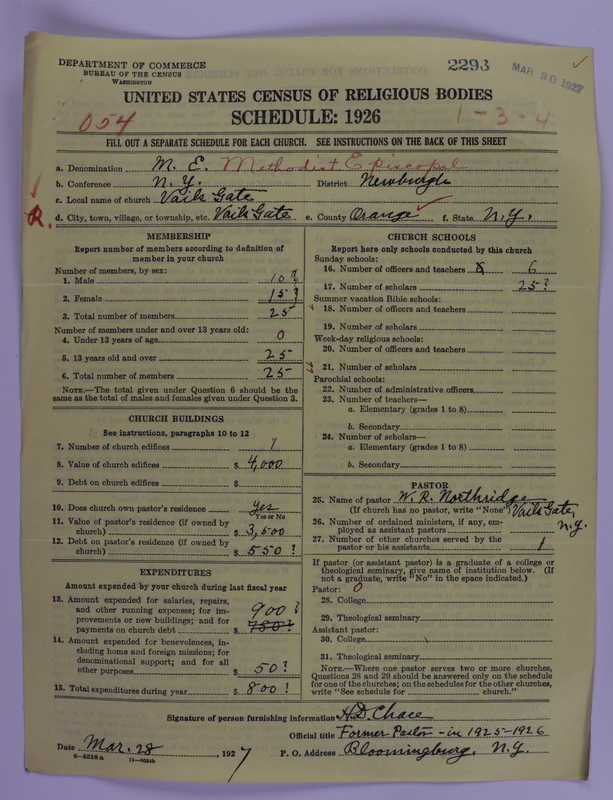 DEPARTMENT OF COMMERCE
BUREAU OF THE CENSUS
WASHINGTON
2293
MAR 30 1927
UNITED STATES CENSUS OF RELIGIOUS BODIES
054
SCHEDULE: 1926
1-3-4
FILL OUT A SEPARATE SCHEDULE FOR EACH CHURCH. SEE INSTRUCTIONS ON THE BACK OF THIS SHEET
a. Denomination M. E. Methodist Episcopal
b. Conference N. Y. District Newburgh
c. Local name of church Vails Gate
R.
d. City, town, village, or township, etc. Vails Gate e. County Orange f. State N. Y.
MEMBERSHIP
Report number of members according to definition of member in your church
Number of members, by sex:
1. Male 10?
2. Female 15?
3. Total number of members 25
Number of members under and over 13 years old:
4. Under 13 years of age 0
5. 13 years old and over 25
6. Total number of members 25
NOTE.—The total given under Question 6 should be the
same as the total of males and females given under Question 3.
CHURCH BUILDINGS
See instructions, paragraphs 10 to 12
7. Number of church edifices 1
8. Value of church edifices $ 4,000
9. Debt on church edifices $
10. Does church own pastor's residence Yes
Yes or No
11. Value of pastor's residence (if owned by
church) $ 3,500
12. Debt on pastor's residence (if owned by
church) $ 550?
EXPENDITURES
Amount expended by your church during last fiscal year
13. Amount expended for salaries, repairs,
and other running expenses; for im-
provements or new buildings; and for
payments on church debt $ 750? 900?
14. Amount expended for benevolences, in-
cluding home and foreign missions; for
denominational support; and for all
other purposes $ 50?
15. Total expenditures during year $ 800?
CHURCH SCHOOLS
Report here only schools conducted by this church
Sunday schools:
16. Number of officers and teachers 6
17. Number of scholars 25?
Summer vacation Bible schools:
18. Number of officers and teachers
19. Number of scholars
Week-day religious schools:
20. Number of officers and teachers
21. Number of scholars
Parochial schools:
22. Number of administrative officers
23. Number of teachers—
a. Elementary (grades 1 to 8)
b. Secondary
24. Number of scholars—
a. Elementary (grades 1 to 8)
b. Secondary
PASTOR
25. Name of pastor W. R. Northridge
(If church has no pastor, write "None") Vails Gate, N. Y.
26. Number of ordained ministers, if any, em-
ployed as assistant pastors
27. Number of other churches served by the
pastor or his assistants 1
If pastor (or assistant pastor) is a graduate of a college or
theological seminary, give name of institution below. (If
not a graduate, write "No" in the space indicated.)
Pastor: 0
28. College
29. Theological seminary
Assistant pastor:
30. College
31. Theological seminary
NOTE.—Where one pastor serves two or more churches,
Questions 28 and 29 should be answered only on the schedule
for one of the churches; on the schedules for the other churches,
write "See schedule for church."
Signature of person furnishing information H. D. Chace
Official title Former Pastor - in 1925-1926
Date Mar. 28, 1927 P. O. Address Bloomingburg, N. Y.